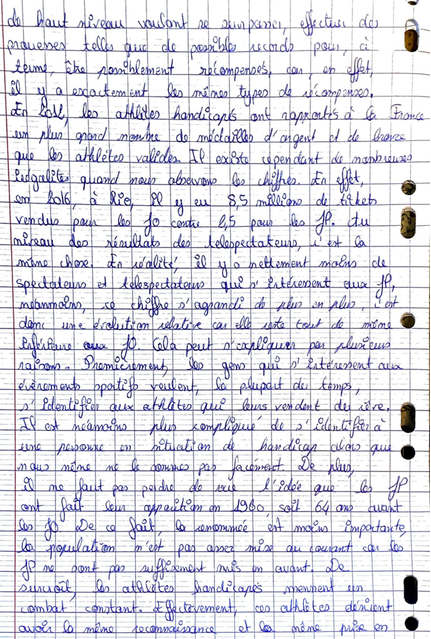 de haut niveau voulant se surpasser, effectuer des
prouesses telles que de possibles records pour, à
terme, être possiblement récompensés, car, en effet,
il y a exactement les mêmes types de récompenses.
En 2016, les athlètes handicapés ont rapportés à la France
un plus grand nombre de médailles d'argent et de bronze
que les athlètes valides. Il existe cependant de nombreuses
inégalités quand nous observons les chiffres. En effet,
en 2016, à Rio, il y eu 8,5 millions de tickets
vendus pour les JO contre 2,5 pour les JP. Au
niveau des résultats des telespectateurs, c'est la
même chose. En réalité, il y a nettement moins de
spectateurs et telespectateurs qui s'intéressent aux JP,
néanmoins, ce chiffre s'agrandi de plus en plus, c'est
donc une évolution relative car elle reste tout de même
inférieure aux JO. Celà peut s'expliquer par plusieurs
raisons. Premièrement, les gens qui s'intéressent aux
évènements sportifs veulent, la plupart du temps,
s'identifier aux athlètes qui leurs vendent du rêve.
Il est néanmoins plus compliqué de s'identifier à
une personne en situation de handicap alors que
nous même ne le sommes pas forcément. De plus,
il ne faut pas perdre de vue l'idée que les JP
ont fait leur apparition en 1960, soit 64 ans avant
les JO. De ce fait, la renommée est moins importante,
la population n'est pas assez mise au courant car les
JP ne sont pas suffisement mis en avant. De
surcroît, les athlètes handicapés mennent un
combat constant. Effectivement, ces athlètes désirent
avoir la même reconnaissance et la même prise en